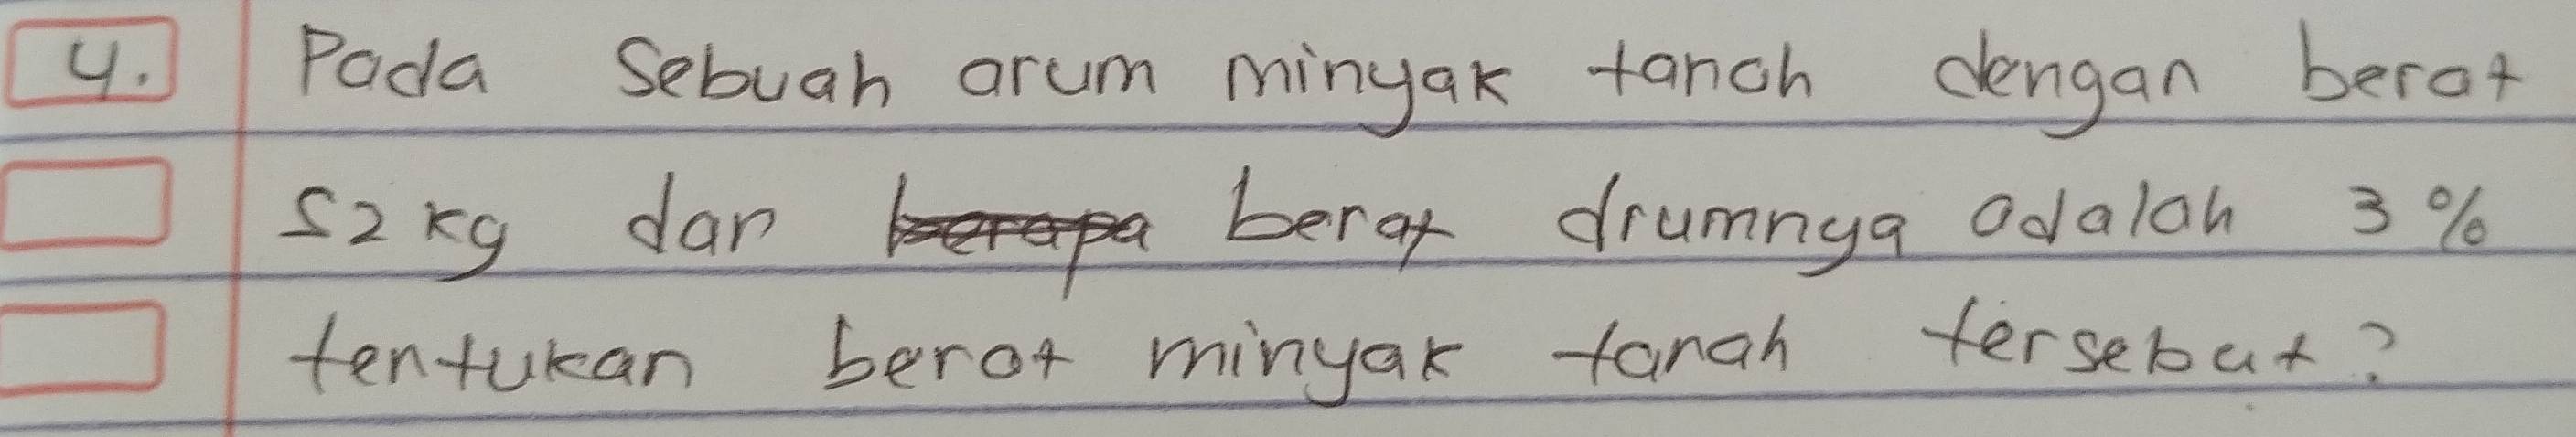 4. Pada Sebuah arum minyak tanah dengan berat
52 kg dan berat drumnya adalah 3 %
tentukan berat minyak tanah tersebut?